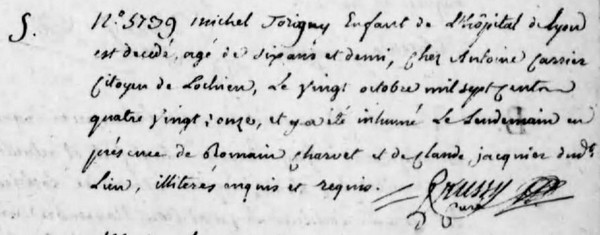 S. N.o 5739 michel Torigny Enfant de L'hôpital de Lyon
est decedé, agé de six ans et demi, chez Antoine Carrier
Citoyen de Lochieu, Le vingt octobre mil sept cent
quatre vingt onze, et y a été inhumé Le Lendemain en
présence de Romain Charvet et de Claude jacquier dud.t
Lieu, illiterés enquis et requis.
Curé